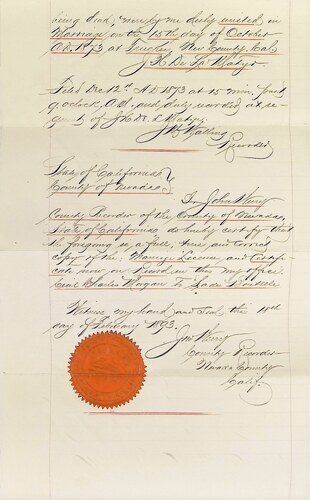 being dead, were by me duly united in
Marriage on the 15th day of October
A.D. 1873 at Truckee, Nev. County, Cal.
J. H. De La Matyr
Filed Dec 12th A.D 1873 at 15 min. past
9 o'clock, A.M. and duly recorded at re-
quest of J. H. De La Matyr
Recorder
State of California
County of Nevada
I, John Henry
County Recorder of the County of Nevada,
State of California, do hereby certify that
the foregoing is a full, true and correct
copy of the Marriage License and Certifi-
cate now on Record in my office.
Charles Morgan to
Witness my hand and Seal, this 11th
day of February 1893.
Jno Henry
County Recorder
Nevada County
Calif.